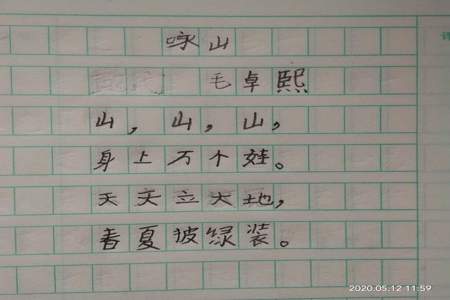 咏山
毛卓熙
山，山，山，
身上万个娃。
天天立大地，
春夏披绿装。
2020.05.12 11:59